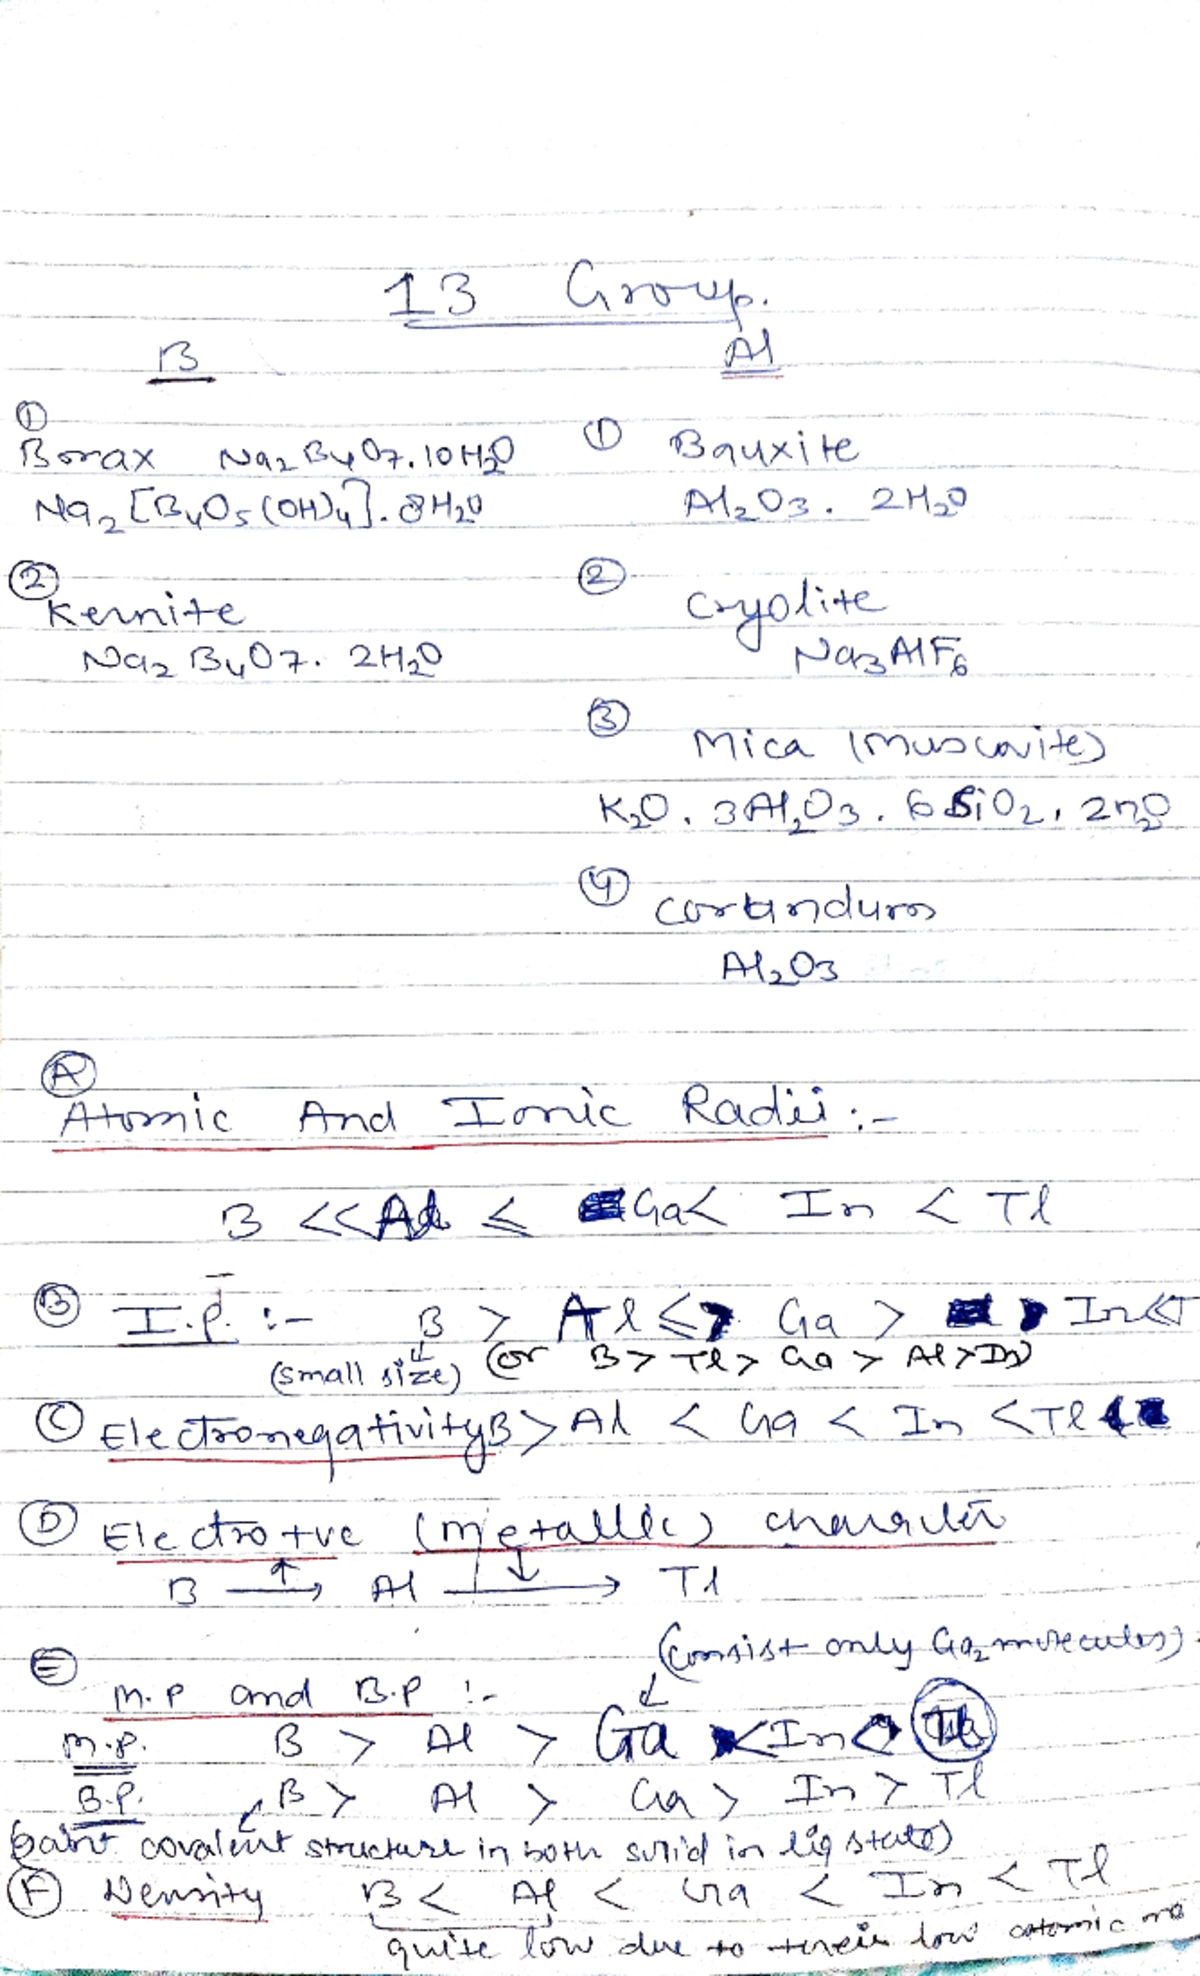 13 Group.
B Al
① ① Bauxite
Borax Na2B4O7.10H2O
Na2[B4O5(OH)4].8H2O Al2O3. 2H2O
② ②
Kernite Cryolite
Na2B4O7. 2H2O Na3AlF6
③
Mica (Muscovite)
K2O. 3Al2O3. 6SiO2. 2H2O
④
corundum
Al2O3
Ⓐ
Atomic And Ionic Radii :-
B << Al < Ga < In < Tl
Ⓑ I.P. :- B > Al < Ga > In < T
(small size) (or B > Tl > Ga > Al > In)
Ⓒ Electronegativity B > Al < Ga < In < Tl
Ⓓ Electro +ve (metallic) character
B ↑→ Al ↓→ Tl
(Consist only Ga2 molecules)
Ⓔ
M.P and B.P :-
M.P. B > Al > Ga < In <
B.P. B > Al > Ga > In > Tl
covalent structure in both solid in liq state)
Ⓕ Density B < Al < Ga < In < Tl
quite low due to their low atomic no